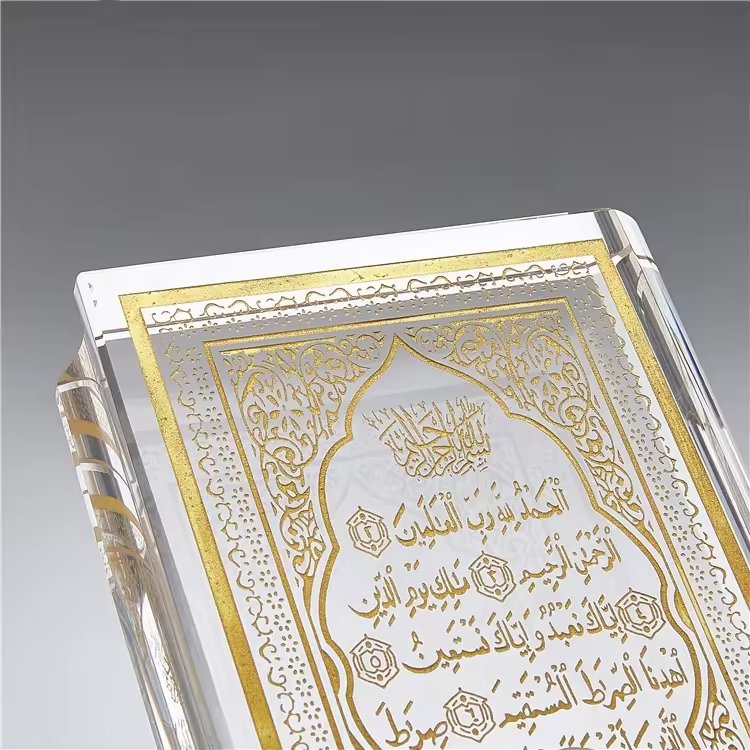 بسم الله الرحمن الرحيم
الْحَمْدُ لِلَّهِ رَبِّ الْعَالَمِينَ ٢
الرَّحْمَٰنِ الرَّحِيمِ ٣ مَالِكِ يَوْمِ الدِّينِ
٤ إِيَّاكَ نَعْبُدُ وَإِيَّاكَ نَسْتَعِينُ ٥
اهْدِنَا الصِّرَاطَ الْمُسْتَقِيمَ ٦ صِرَاطَ